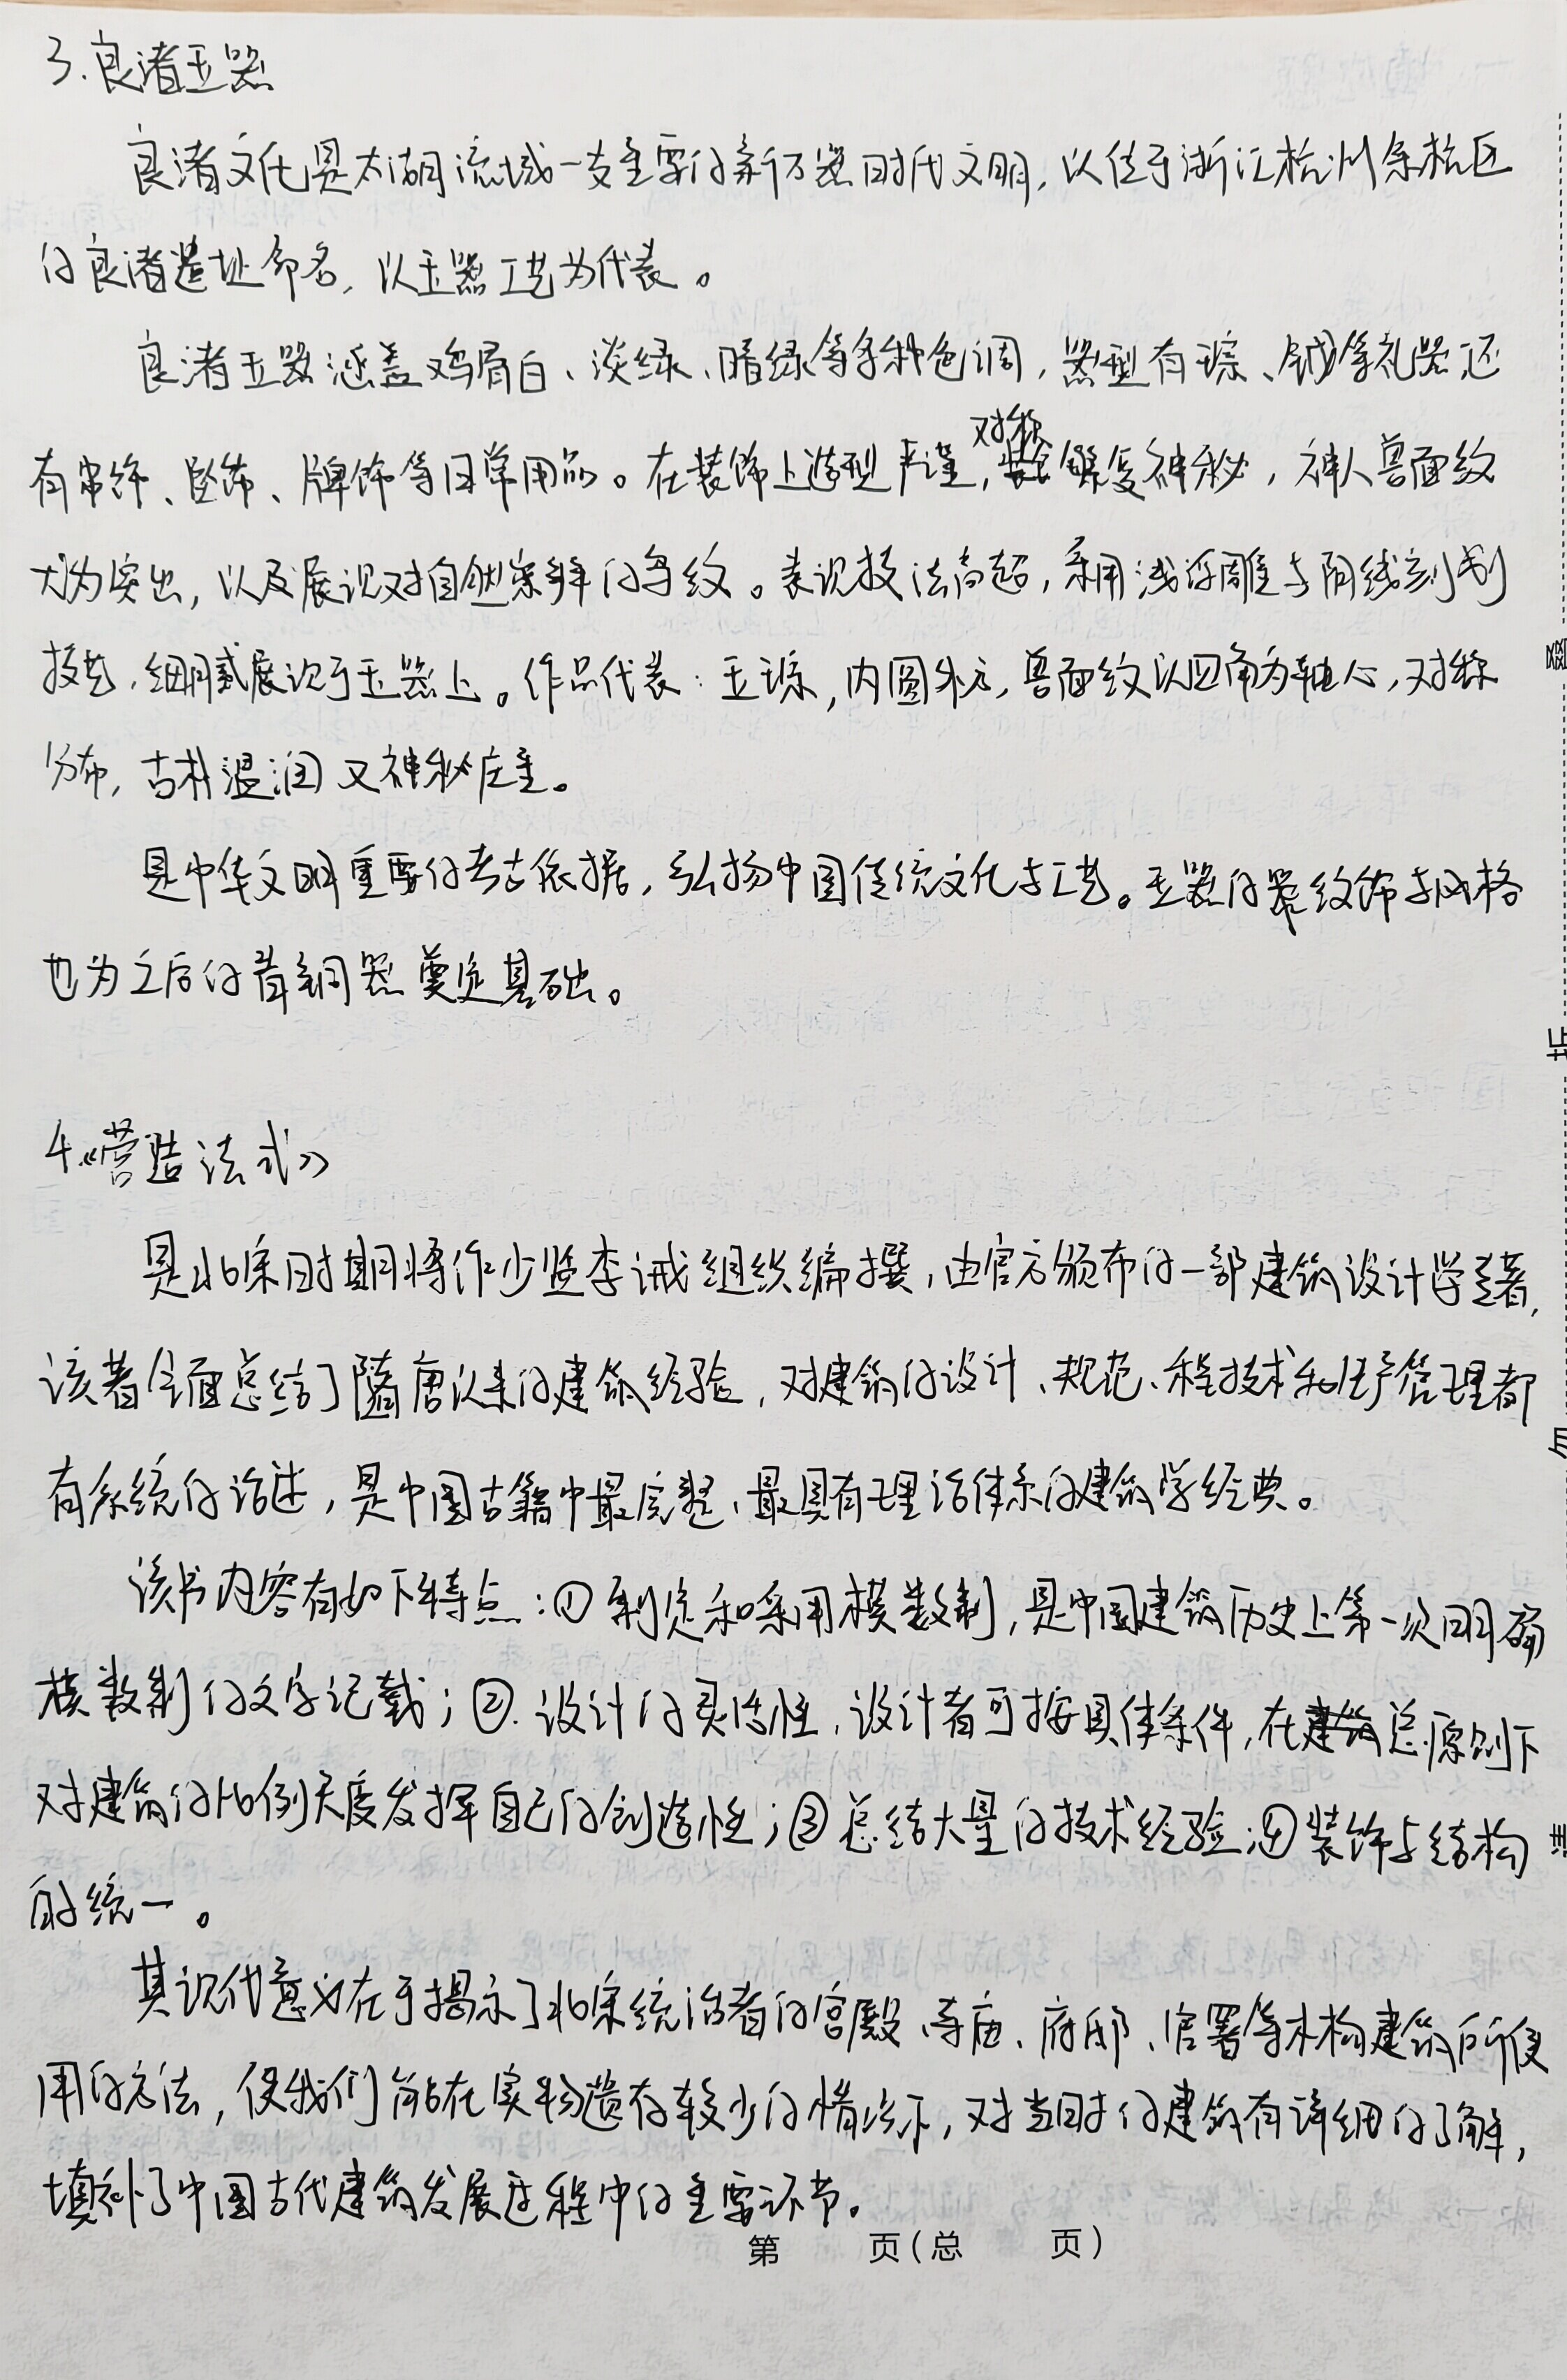 3.良渚玉器
良渚文化是太湖流域一支重要的新石器时代文明,以位于浙江杭州余杭区
的良渚遗址命名,以玉器工艺为代表。
良渚玉器涵盖鸡骨白、淡绿、暗绿等多种色调,器型有琮、钺等礼器还
有串饰、坠饰、牌饰等日常用品。在装饰上造型严谨,对称繁复神秘,神人兽面纹
尤为突出,以及展现对自然崇拜的鸟纹。表现技法高超,采用浅浮雕与阴线刻制
技艺,细腻展现于玉器上。作品代表:玉琮,内圆外方,兽面纹以四角为轴心,对称
分布,古朴温润又神秘庄重。
是中华文明重要的考古依据,弘扬中国传统文化与工艺。玉器的器纹饰与风格
也为之后的青铜器奠定基础。
4.《营造法式》
是北宋时期将作少监李诫组织编撰,由官方颁布的一部建筑设计学专著,
该著全面总结了隋唐以来的建筑经验,对建筑的设计、规范、工程技术和生产管理都
有系统的论述,是中国古籍中最完整、最具有理论体系的建筑学经典。
该书内容有如下特点:①制定和采用模数制,是中国建筑历史上第一次明确
模数制的文字记载;②.设计的灵活性,设计者可按具体条件,在总原则下
对建筑的比例尺度发挥自己的创造性;③总结大量的技术经验;④装饰与结构
的统一。
其现代意义在于揭示了北宋统治者的宫殿、寺庙、府邸、官署等木构建筑所使
用的方法,使我们能在实物遗存较少的情况下,对当时的建筑有详细的了解,
填补了中国古代建筑发展过程中的重要环节。
第 页(总 页)